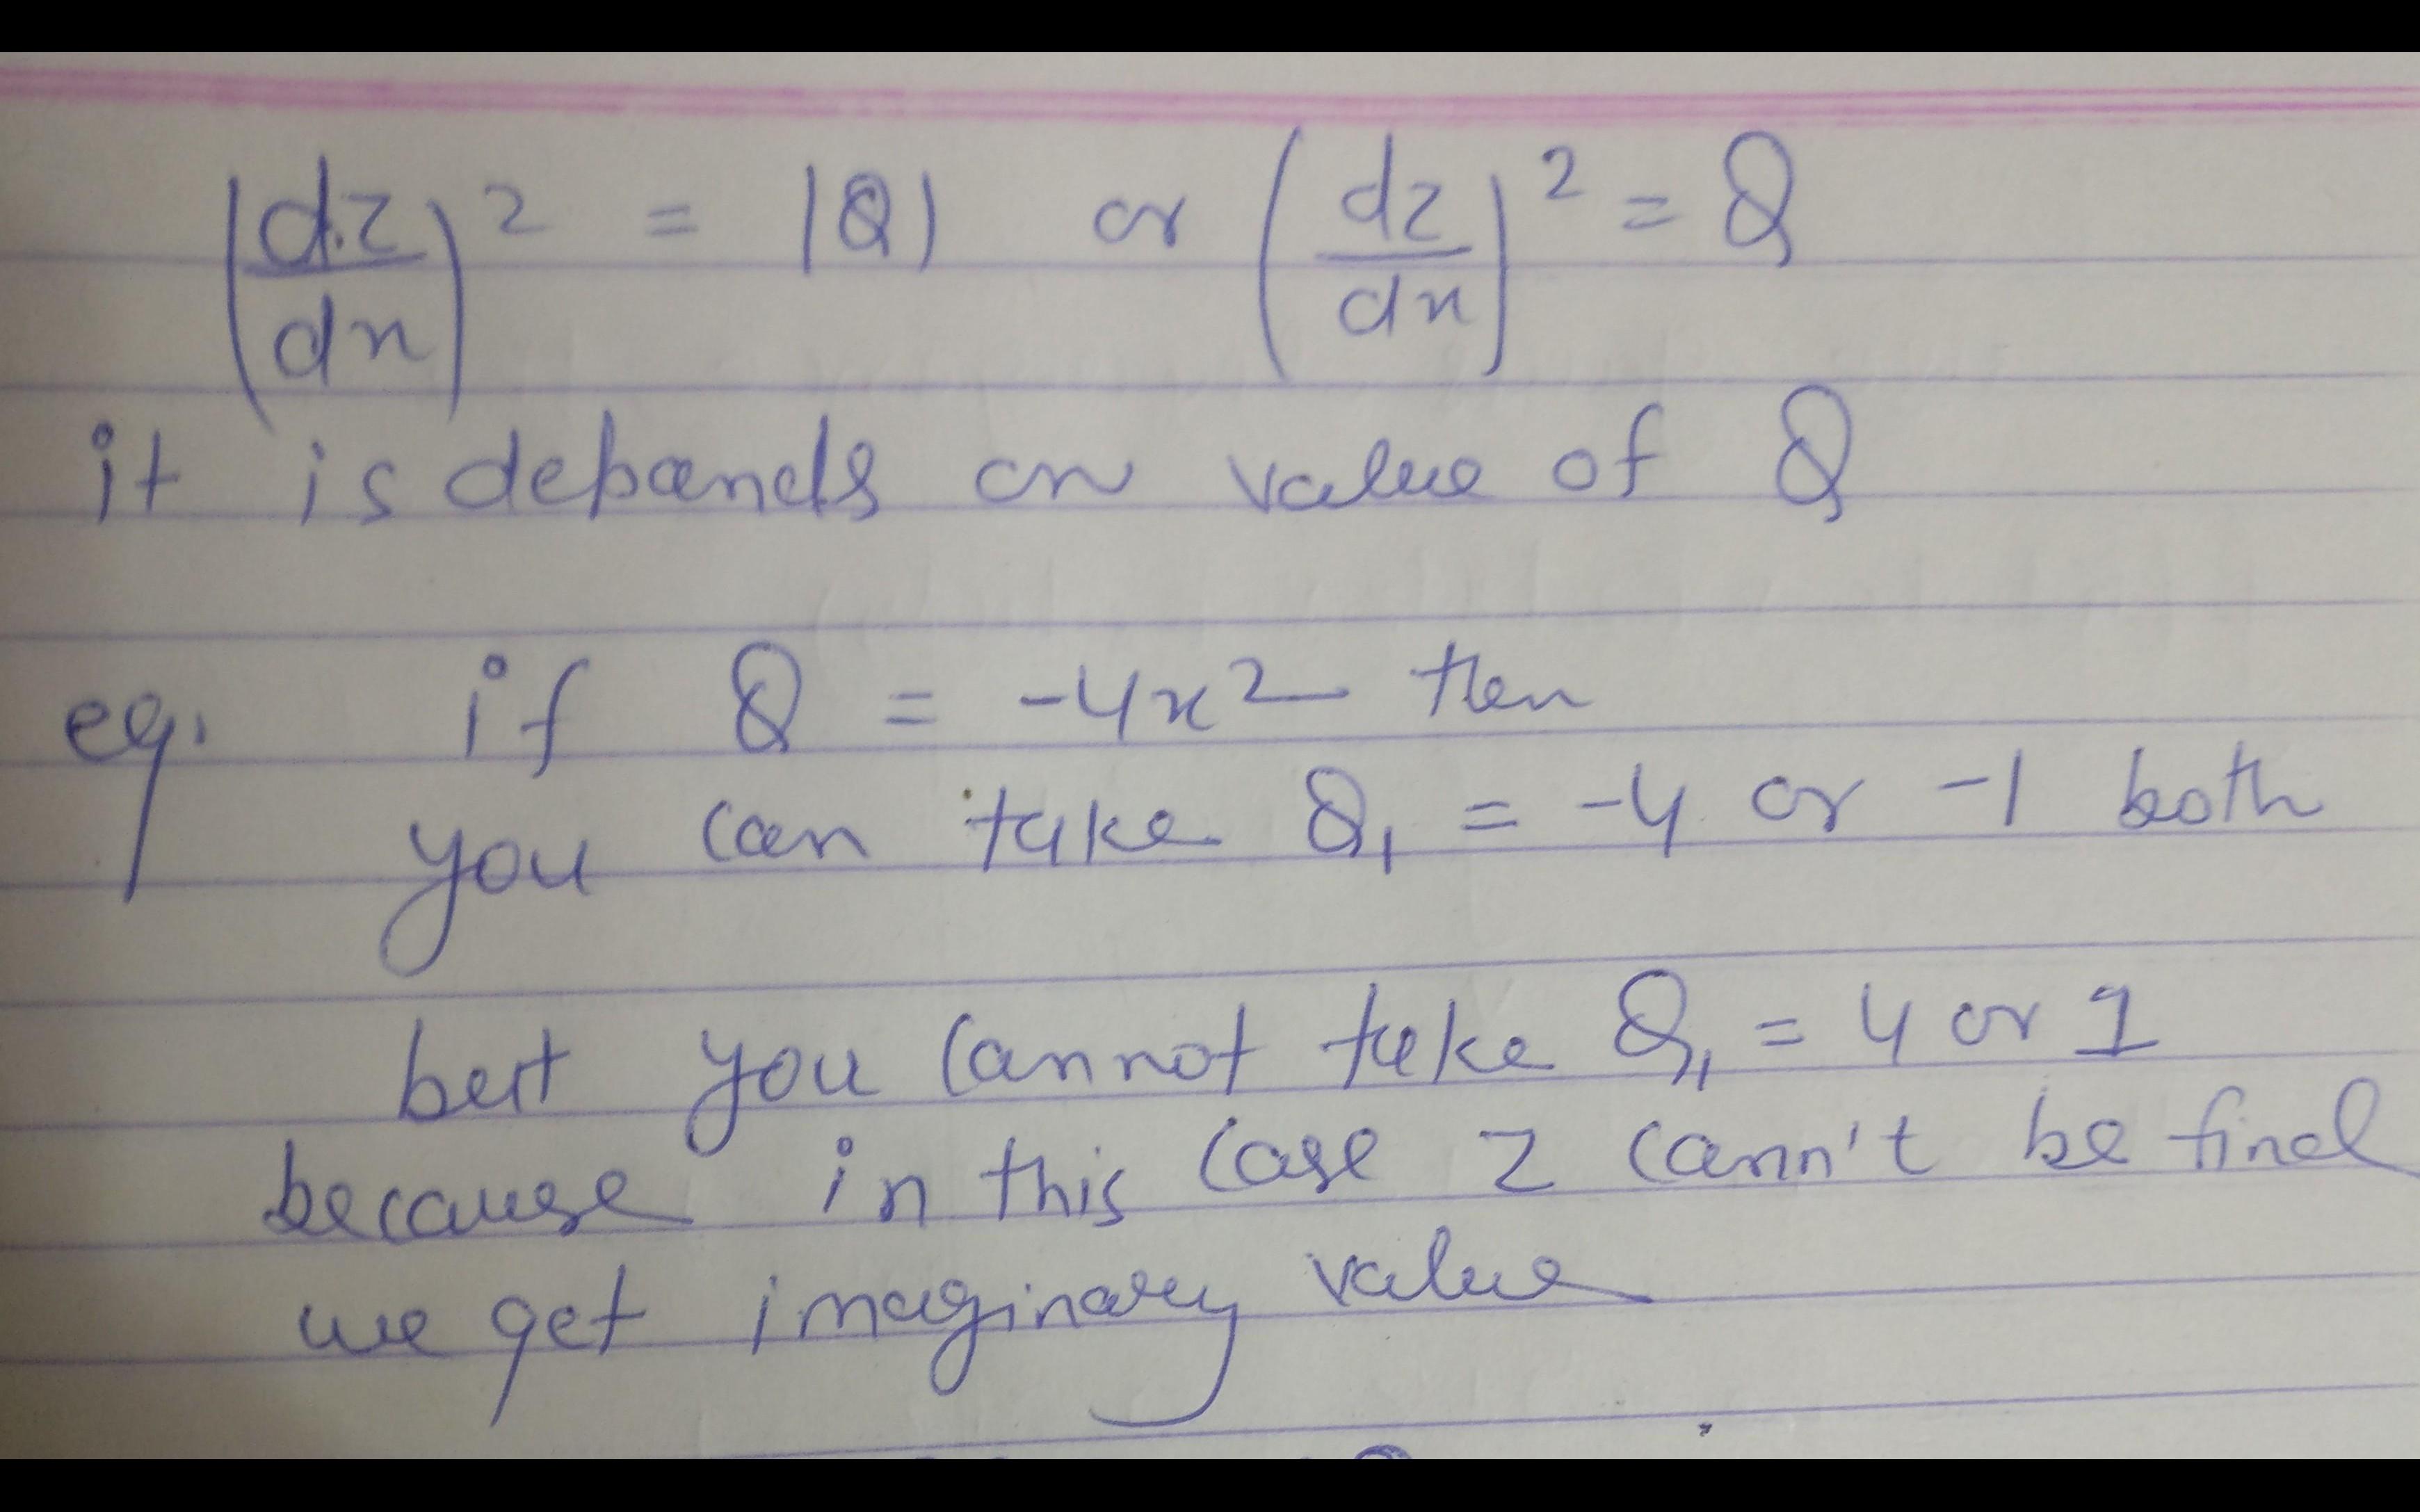 (dz/dx)² = |Q| or (dz/dx)² = Q
it is depands on value of Q
eg. if Q = -4x² then
you can take Q₁ = -4 or -1 both
but you cannot take Q₁ = 4 or 1
because in this case z cann't be find
we get imaginary value